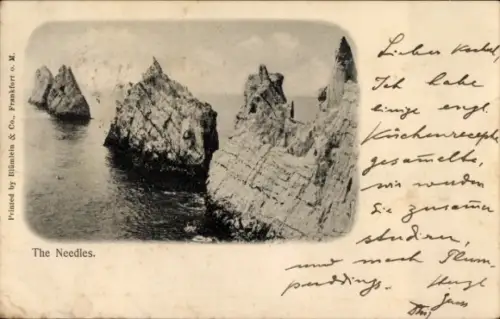 Printed by Blümlein & Co., Frankfort o. M.
The Needles.
Lieber
Ich habe
einige engl.
Küchenrecepte
gesammelte,
wir werden
sie zusammen
studiren,
und mach Plum-
puddings.